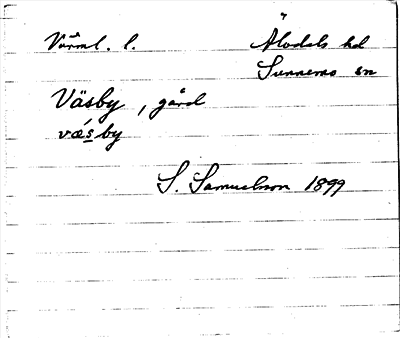 Värml. l. Älvdals hd
Sunnemo sn
Väsby, gård
vǽs̲by
S. Samuelsson 1899